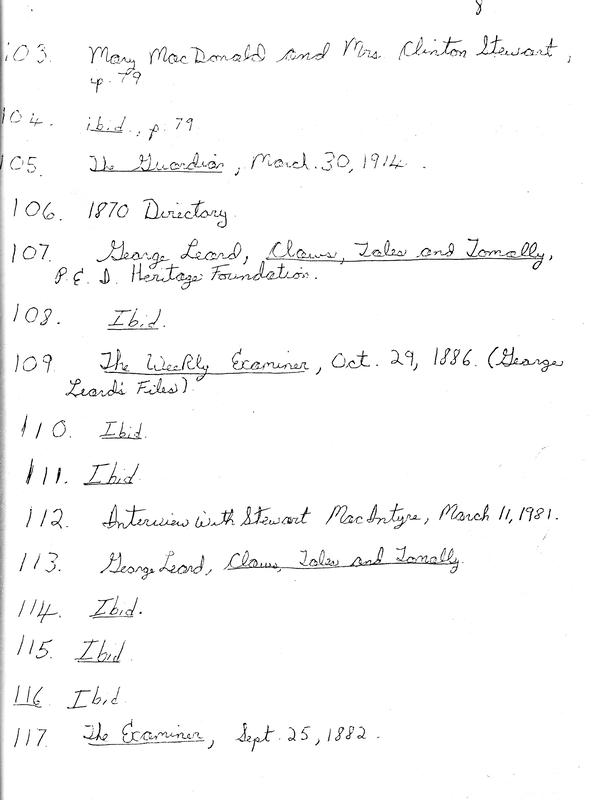 8
103. Mary MacDonald and Mrs. Clinton Stewart,
p. 79
104. ibid., p. 79
105. The Guardian, March 30, 1914.
106. 1870 Directory
107. George Leard, Claws, Tales and Tomally,
P.E.I. Heritage Foundation.
108. Ibid.
109. The Weekly Examiner, Oct. 29, 1886. (George
Leard's Files)
110. Ibid.
111. Ibid.
112. Interview with Stewart MacIntyre, March 11, 1981.
113. George Leard, Claws, Tales and Tomally.
114. Ibid.
115. Ibid.
116 Ibid
117. The Examiner, Sept. 25, 1882.